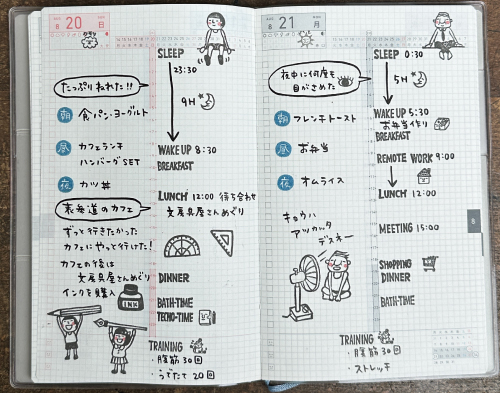 8 20 日
SLEEP
23:30
たっぷりねれた!!
9H
朝 食パン・ヨーグルト
昼 カフェランチ
ハンバーグSET
夜 カツ丼
WAKE UP 8:30
BREAKFAST
LUNCH 12:00 待ち合わせ
文房具屋さんめぐり
表参道のカフェ
ずっと行きたかった
カフェにやって行けた!
カフェの後は
文房具屋さんめぐり
インクを購入
INK
DINNER
BATH-TIME
TECHO-TIME
TRAINING
・腹筋30回
・うでたて20回
8 21 月
SLEEP 0:30
夜中に何度も
目がさめた
5H
朝 フレンチトースト
昼 お弁当
夜 オムライス
WAKE UP 5:30
お弁当作り
BREAKFAST
REMOTE WORK 9:00
LUNCH 12:00
キョウハ
アツカッタ
デスネー
MEETING 15:00
SHOPPING
DINNER
BATH-TIME
TRAINING
・腹筋30回
・ストレッチ
8